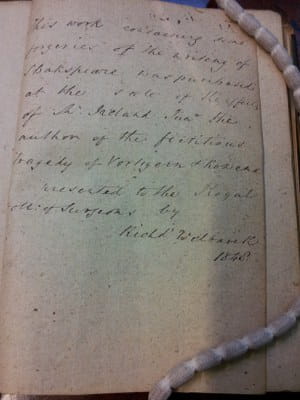 This work containing
forgeries of the writing of
Shakspeare, was purchased
at the sale of the
of Mr. Ireland Junr. the
author of the fictitious
tragedy of Vortigern & Rowena
Presented to the Royal
Coll: of Surgeons by
Richd.
1848